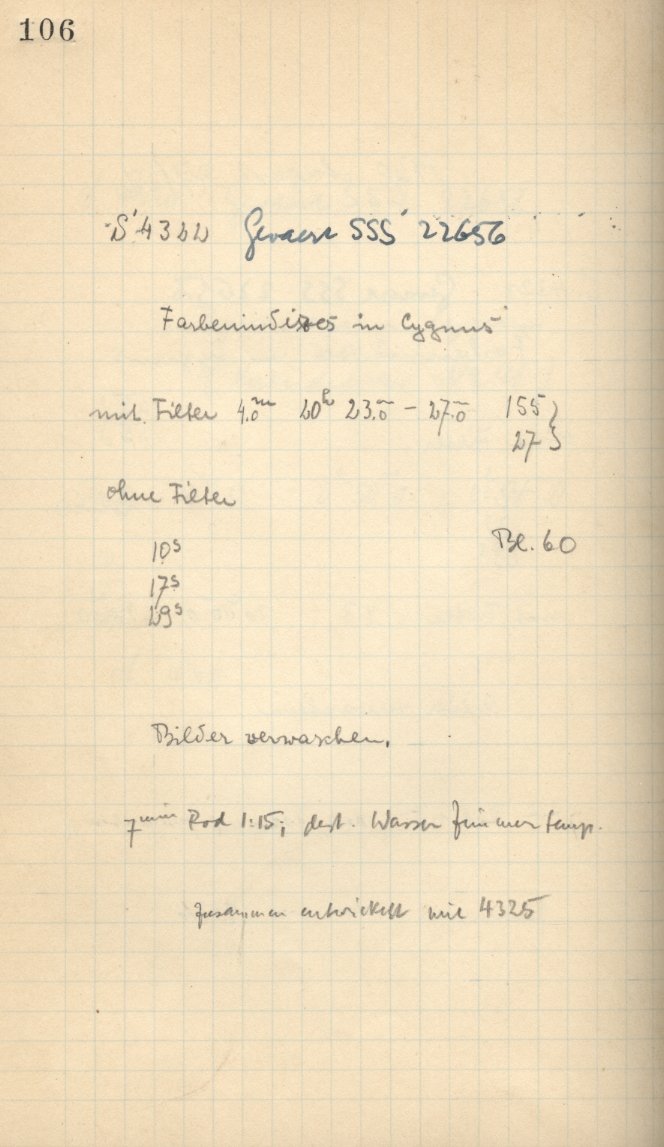 106
S 4322 Gevaert SSS 22656
Farbenindizes in Cygnus
mit Filter 4.0ᵐ 20ʰ 23.0ᵐ – 27.0ᵐ 155 }
27 }
ohne Filter
Bl. 60
10ˢ
17ˢ
29ˢ
Bilder verwaschen.
7ᵐⁱⁿ Rod 1:15; dest. Wasser Zimmertemp.
Zusammen entwickelt mit 4325